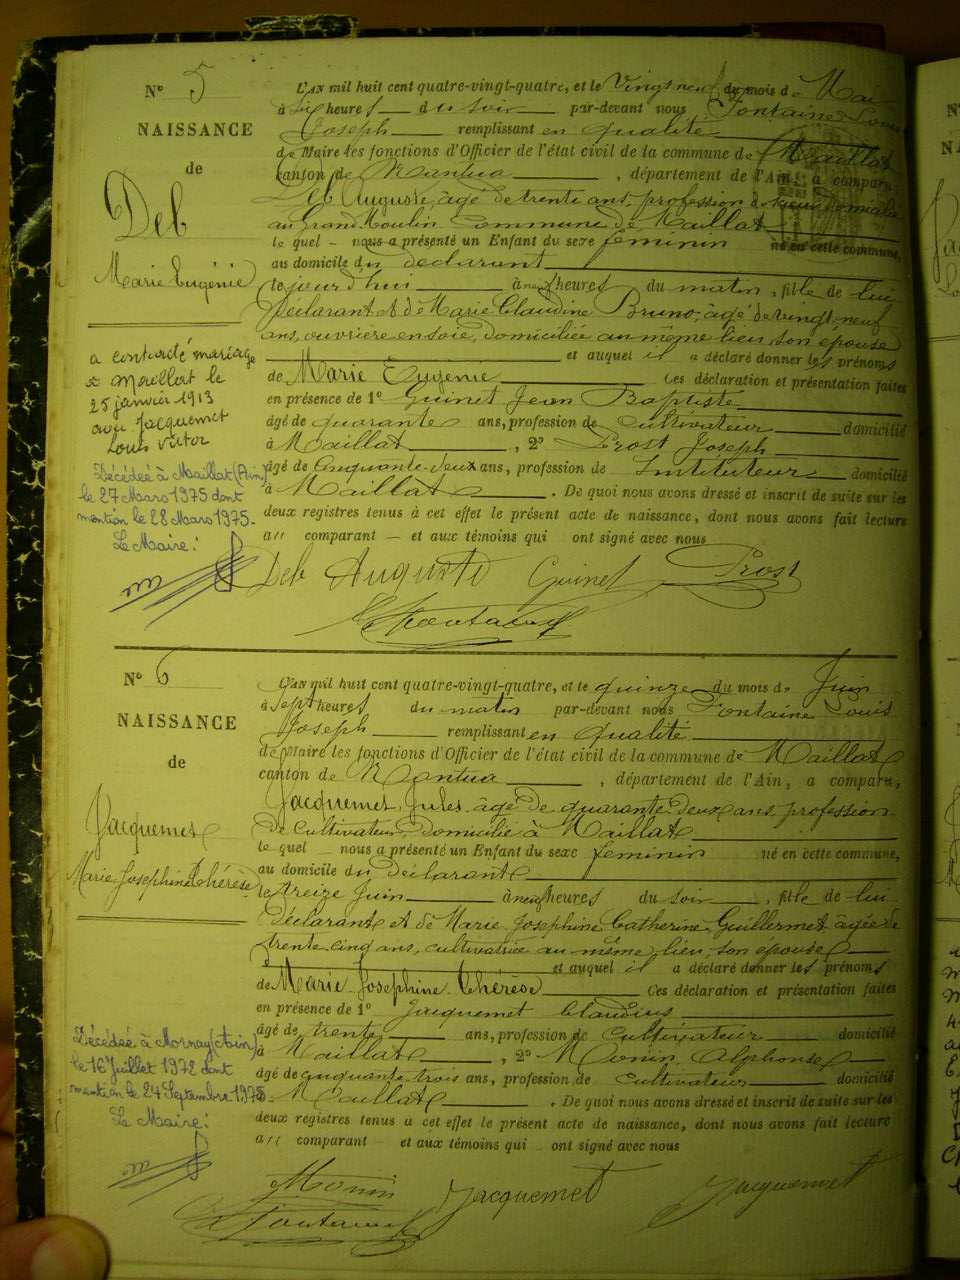 N° 5
NAISSANCE
de
Deb
Marie Eugénie
a contracté mariage
à Maillat le
25 janvier 1913
avec Jacquemet
Louis Victor
Décédée à Maillat (Ain)
le 27 Mars 1975 dont
mention le 28 Mars 1975.
Le Maire:
L'AN mil huit cent quatre-vingt-quatre, et le Vingt neuf du mois de Mai
à Six heures du soir par-devant nous Fontaine Louis
Joseph remplissant en qualité
de Maire les fonctions d'Officier de l'état civil de la commune de Maillat
canton de Nantua, département de l'Ain, a comparu,
Deb Auguste, âgé de trente ans, profession de
au Grand Moulin Commune de Maillat
le quel nous a présenté un Enfant du sexe féminin né en cette commune,
au domicile du déclarant
le jourd'hui à neuf heures du matin, fille de lui
Déclarant et de Marie Claudine Bruno, âgé de vingt-neuf
ans, ouvrière en soie, domiciliée au même lieu, son épouse
et auquel il a déclaré donner les prénoms
de Marie Eugénie Ces déclaration et présentation faites
en présence de 1° Guinet Jean Baptiste
âgé de quarante ans, profession de cultivateur domicilié
à Maillat, 2° Prost Joseph
âgé de Cinquante-deux ans, profession de Instituteur domicilié
à Maillat. De quoi nous avons dressé et inscrit de suite sur les
deux registres tenus à cet effet le présent acte de naissance, dont nous avons fait lecture
au comparant et aux témoins qui ont signé avec nous
Deb Auguste Guinet Prost
Fontaine
N° 6
NAISSANCE
de
Jacquemet
Marie Joséphine Thérèse
Décédée à Mornay (Ain)
le 16 Juillet 1972 dont
mention le 24 Septembre 1975
Le Maire:
L'AN mil huit cent quatre-vingt-quatre, et le quinze du mois de Juin
à Sept heures du matin par-devant nous Fontaine Louis
Joseph remplissant en qualité
de Maire les fonctions d'Officier de l'état civil de la commune de Maillat
canton de Nantua, département de l'Ain, a comparu,
Jacquemet Jules, âgé de quarante deux ans, profession
de cultivateur, domicilié à Maillat
le quel nous a présenté un Enfant du sexe féminin né en cette commune,
au domicile du déclarant
le treize Juin à neuf heures du soir, fille de lui
Déclarant et de Marie Joséphine Catherine Guillermet, âgée de
trente cinq ans, cultivatrice au même lieu, son épouse
et auquel il a déclaré donner les prénoms
de Marie Joséphine Thérèse Ces déclaration et présentation faites
en présence de 1° Jacquemet Claudius
âgé de trente ans, profession de cultivateur domicilié
à Maillat, 2° Monin Alphonse
âgé de cinquante trois ans, profession de cultivateur domicilié
à Maillat. De quoi nous avons dressé et inscrit de suite sur les
deux registres tenus à cet effet le présent acte de naissance, dont nous avons fait lecture
au comparant et aux témoins qui ont signé avec nous
Monin Jacquemet Jacquemet
Fontaine